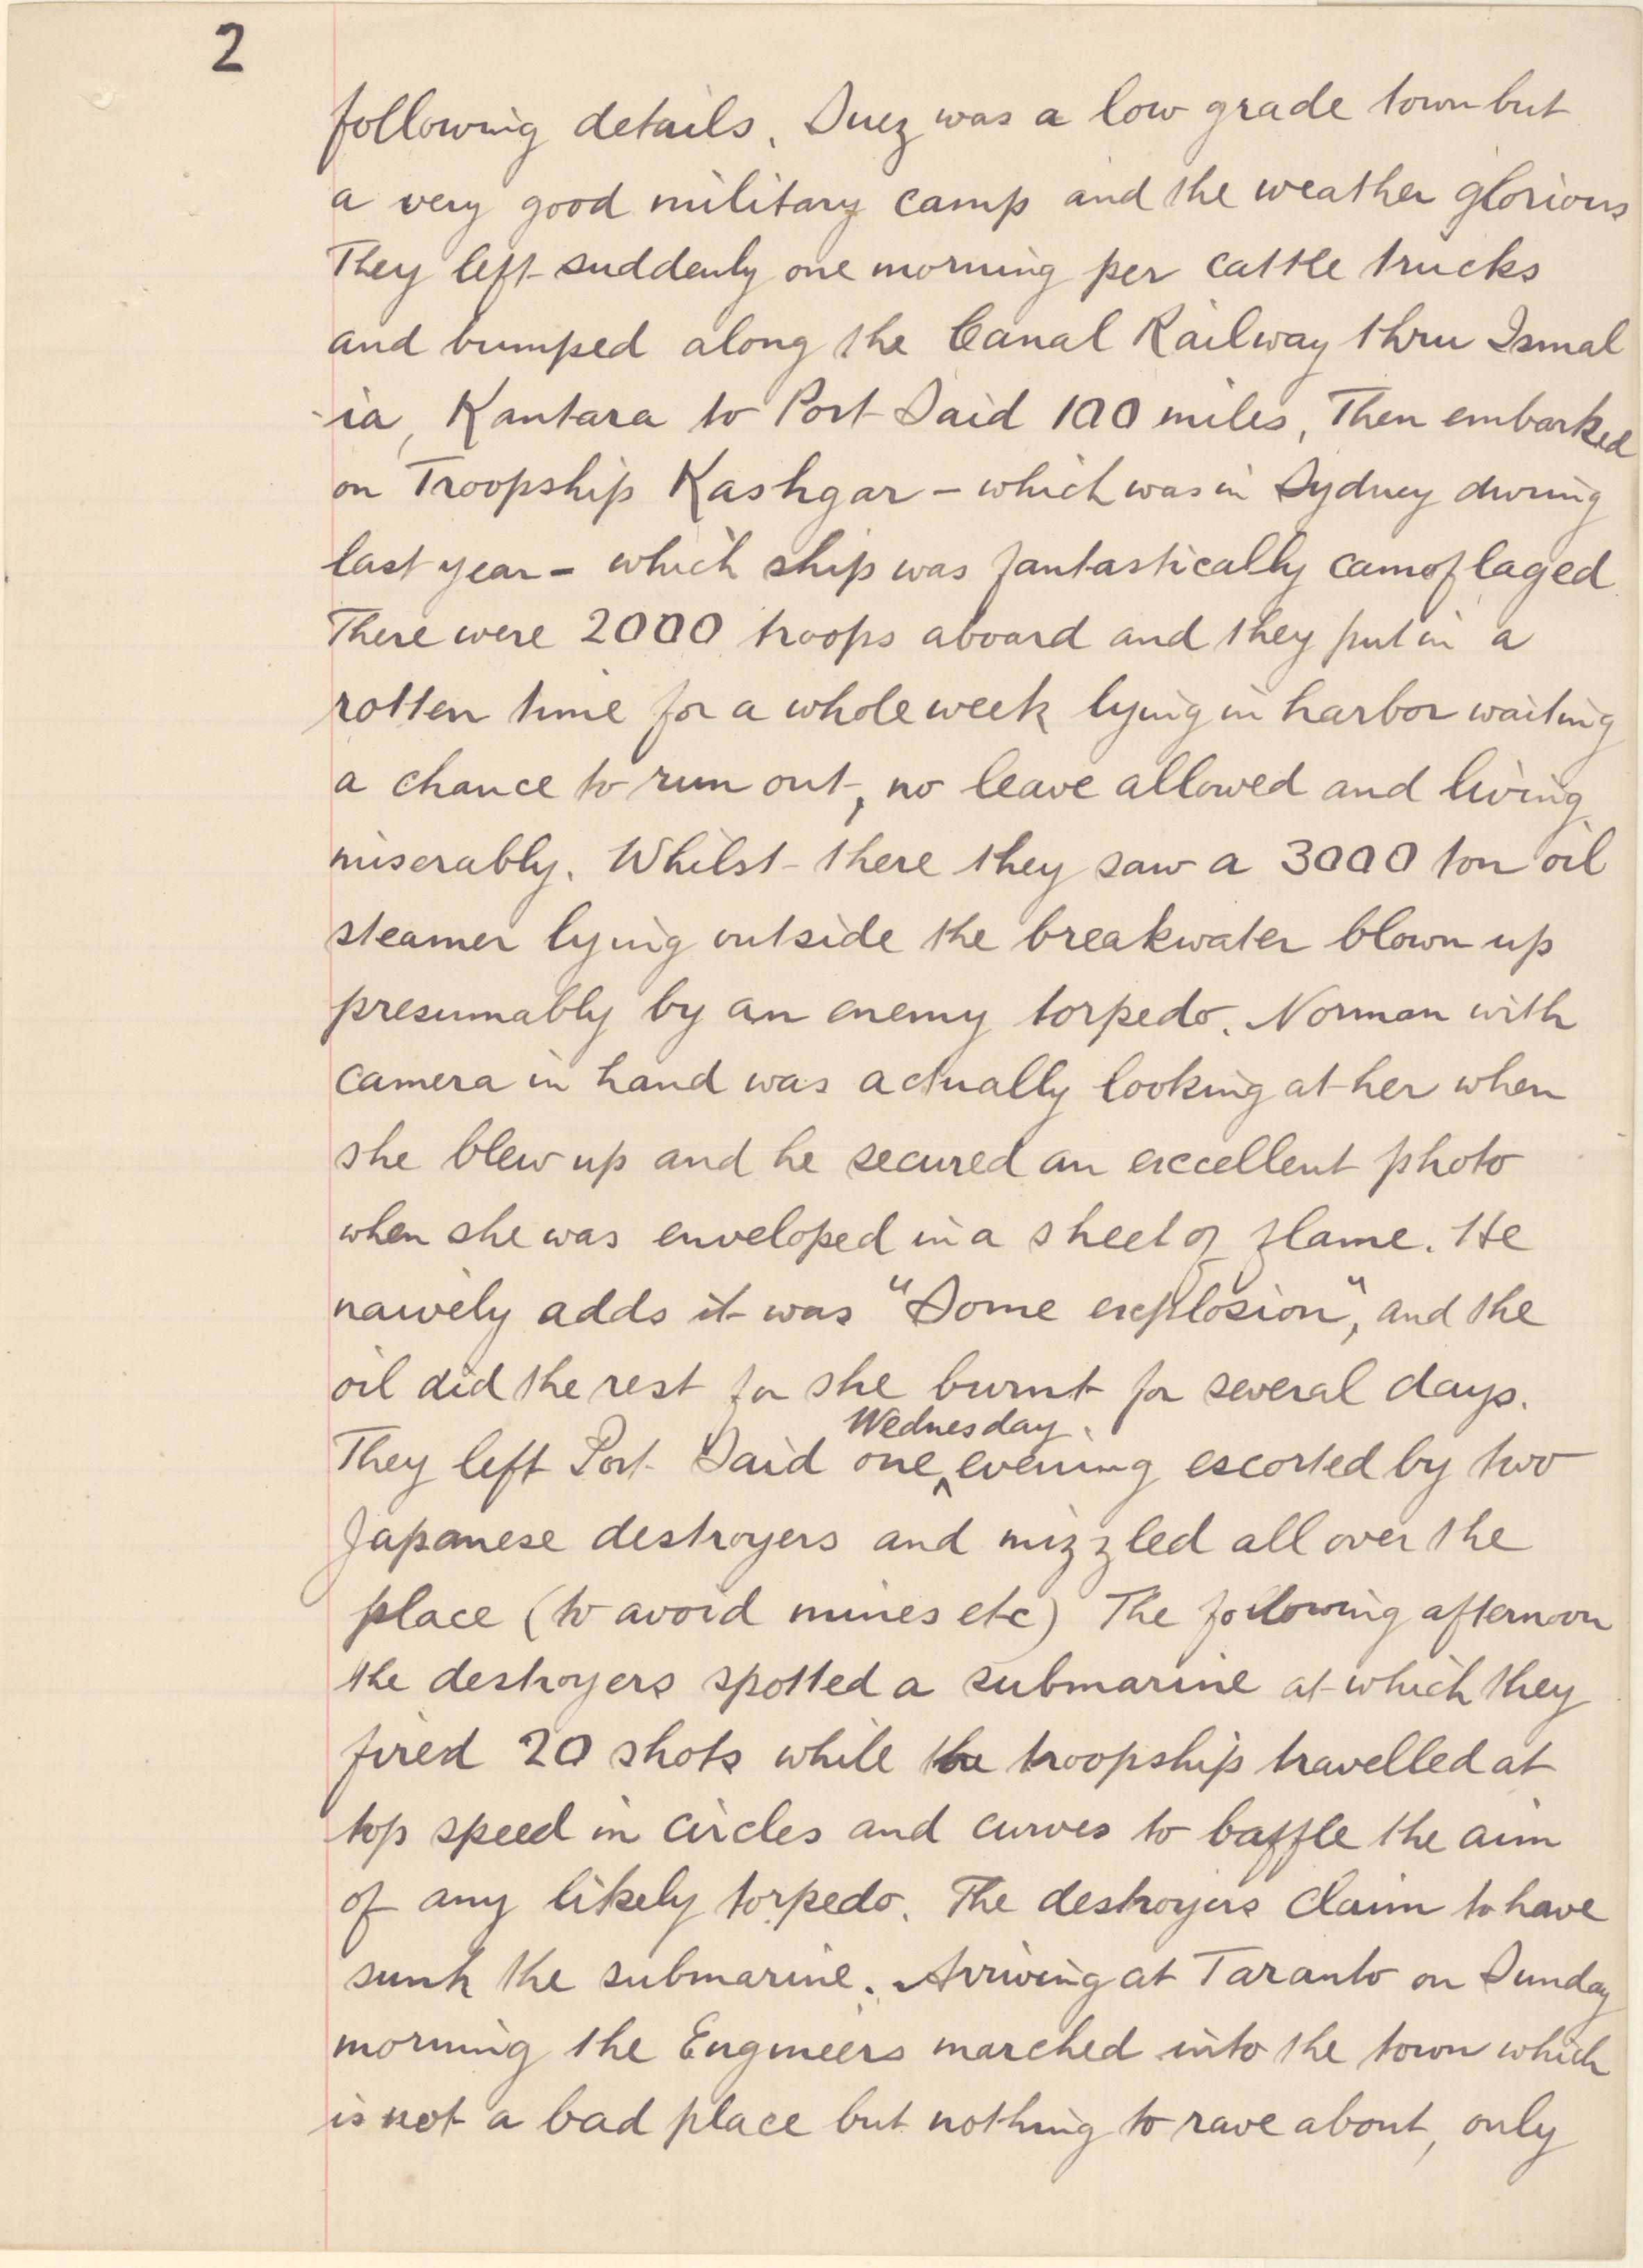 2
following details. Suez was a low grade town but
a very good military camp and the weather glorious
They left suddenly one morning per cattle trucks
and bumped along the Canal Railway thru Ismal
-ia, Kantara to Port Said 100 miles. Then embarked
on Troopship Kashgar - which was in Sydney during
last year - which ship was fantastically camoflaged
There were 2000 troops aboard and they put in a
rotten time for a whole week lying in harbor waiting
a chance to run out, no leave allowed and living
miserably. Whilst there they saw a 3000 ton oil
steamer lying outside the breakwater blown up
presumably by an enemy torpedo. Norman with
camera in hand was actually looking at her when
she blew up and he secured an excellent photo
when she was enveloped in a sheet of flame. He
naively adds it was "Some explosion", and the
oil did the rest for she burnt for several days.
Wednesday
They left Port Said one ^ evening escorted by two
Japanese destroyers and mizzled all over the
place (to avoid mines etc) The following afternoon
the destroyers spotted a submarine at which they
fired 20 shots while the troopship travelled at
top speed in circles and curves to baffle the aim
of any likely torpedo. The destroyers claim to have
sunk the submarine. Arriving at Taranto on Sunday
morning the Engineers marched into the town which
is not a bad place but nothing to rave about, only